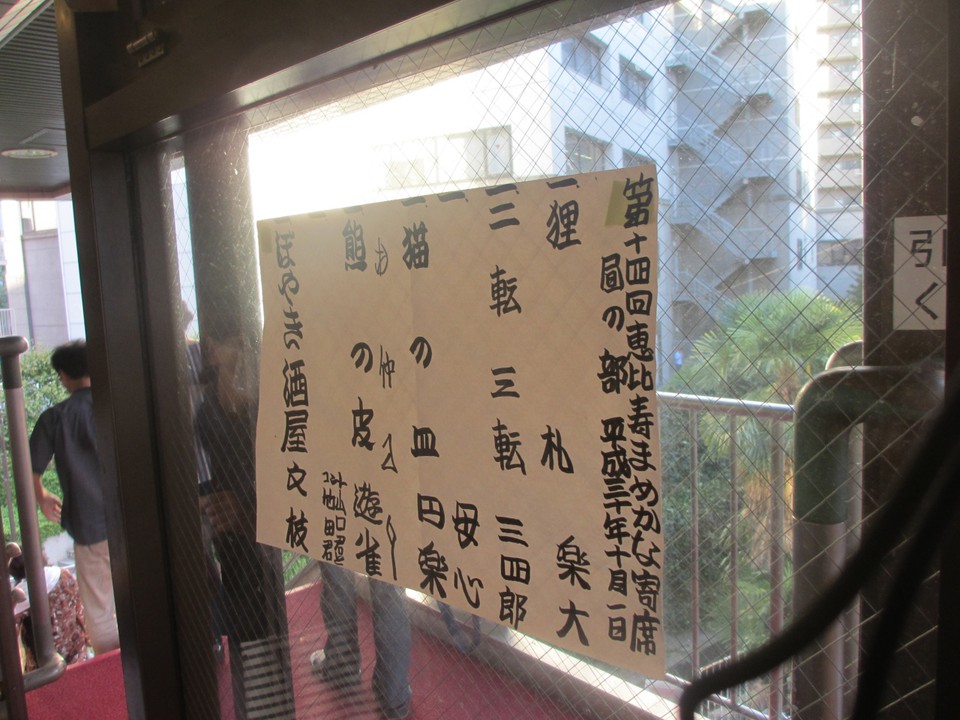 第十四回恵比寿まめかな寄席
昼の部 平成三十年十月一日
一 狸 札 楽大
一 二転三転 三四郎
一 母心
一 猫の皿 円楽
お仲入り
一 熊の皮 遊雀
一 ぼやき酒屋 文枝
引く